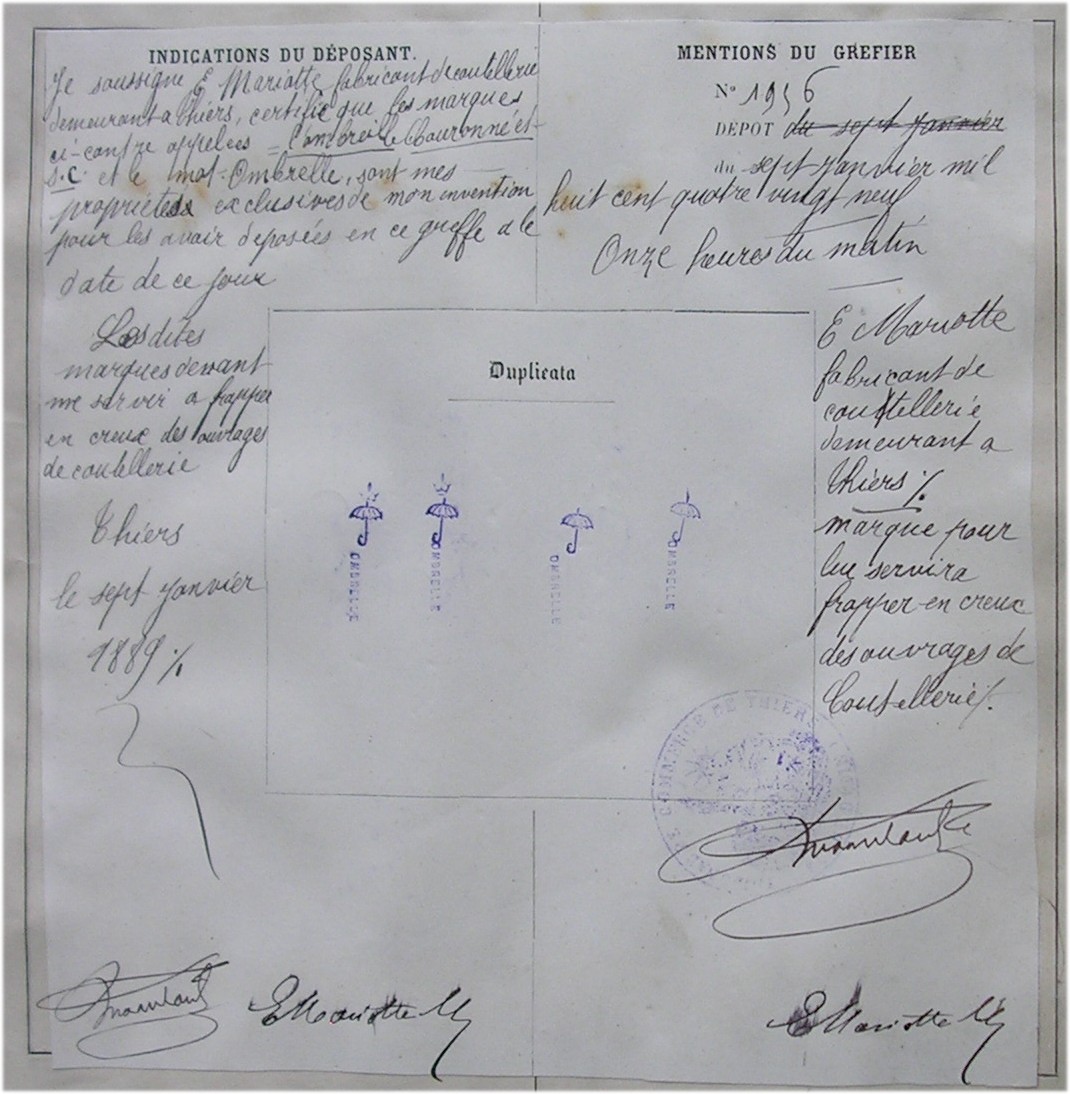 INDICATIONS DU DÉPOSANT.
Je soussigne E Mariotte fabricant de coutellerie
demeurant a Thiers, certifie que les marques
ci-contre appelees = L'ombrelle Couronné et
S.C et le mot Ombrelle, sont mes
proprietes exclusives de mon invention
pour les avoir deposées en ce greffe a le
date de ce jour
Les dites
marques devant
me servir a frapper
en creux des ouvrages
de coutellerie
Thiers
le sept janvier
1889 %
MENTIONS DU GREFIER
N° 1956
DÉPOT du sept janvier
du sept janvier mil
huit cent quatre vingt neuf
Onze heures du matin
E Mariotte
fabricant de
coutellerie
demeurant a
Thiers %
marque pour
lui servir a
frapper en creux
des ouvrages de
Coutellerie %.
Duplicata
OMBRELLE
OMBRELLE
OMBRELLE
OMBRELLE
COMMERCE DE THIERS
E Mariotte
E Mariotte